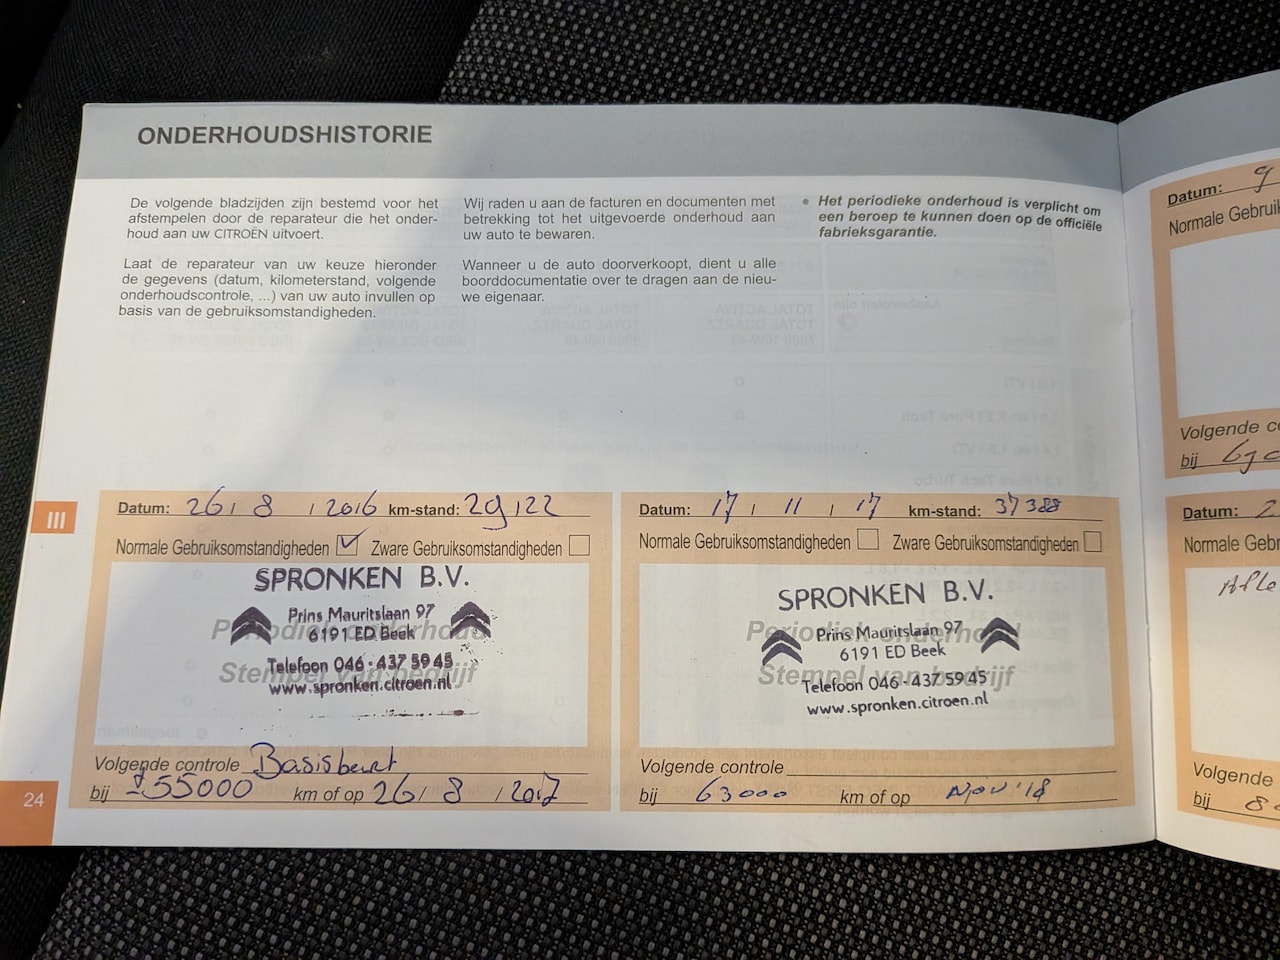 ONDERHOUDSHISTORIE
De volgende bladzijden zijn bestemd voor het
afstempelen door de reparateur die het onder-
houd aan uw CITROËN uitvoert.
Laat de reparateur van uw keuze hieronder
de gegevens (datum, kilometerstand, volgende
onderhoudscontrole, ...) van uw auto invullen op
basis van de gebruiksomstandigheden.
Wij raden u aan de facturen en documenten met
betrekking tot het uitgevoerde onderhoud aan
uw auto te bewaren.
Wanneer u de auto doorverkoopt, dient u alle
boorddocumentatie over te dragen aan de nieu-
we eigenaar.
• Het periodieke onderhoud is verplicht om
een beroep te kunnen doen op de officiële
fabrieksgarantie.
III
Datum: 26 / 8 / 2016 km-stand: 29122
Normale Gebruiksomstandigheden Zware Gebruiksomstandigheden
Periodiek onderhoud
Stempel van bedrijf
SPRONKEN B.V.
Prins Mauritslaan 97
6191 ED Beek
Telefoon 046-437 59 45
www.spronken.citroen.nl
Volgende controle Basisbeurt
bij ±55000 km of op 26 / 8 / 2017
Datum: 17 / 11 / 17 km-stand: 37388
Normale Gebruiksomstandigheden Zware Gebruiksomstandigheden
Periodiek onderhoud
Stempel van bedrijf
SPRONKEN B.V.
Prins Mauritslaan 97
6191 ED Beek
Telefoon 046-437 59 45
www.spronken.citroen.nl
Volgende controle
bij 63000 km of op Nov '18
24
Datum: 9
Normale
Volgende
bij
Datum: 2
Normale
Volgende
bij